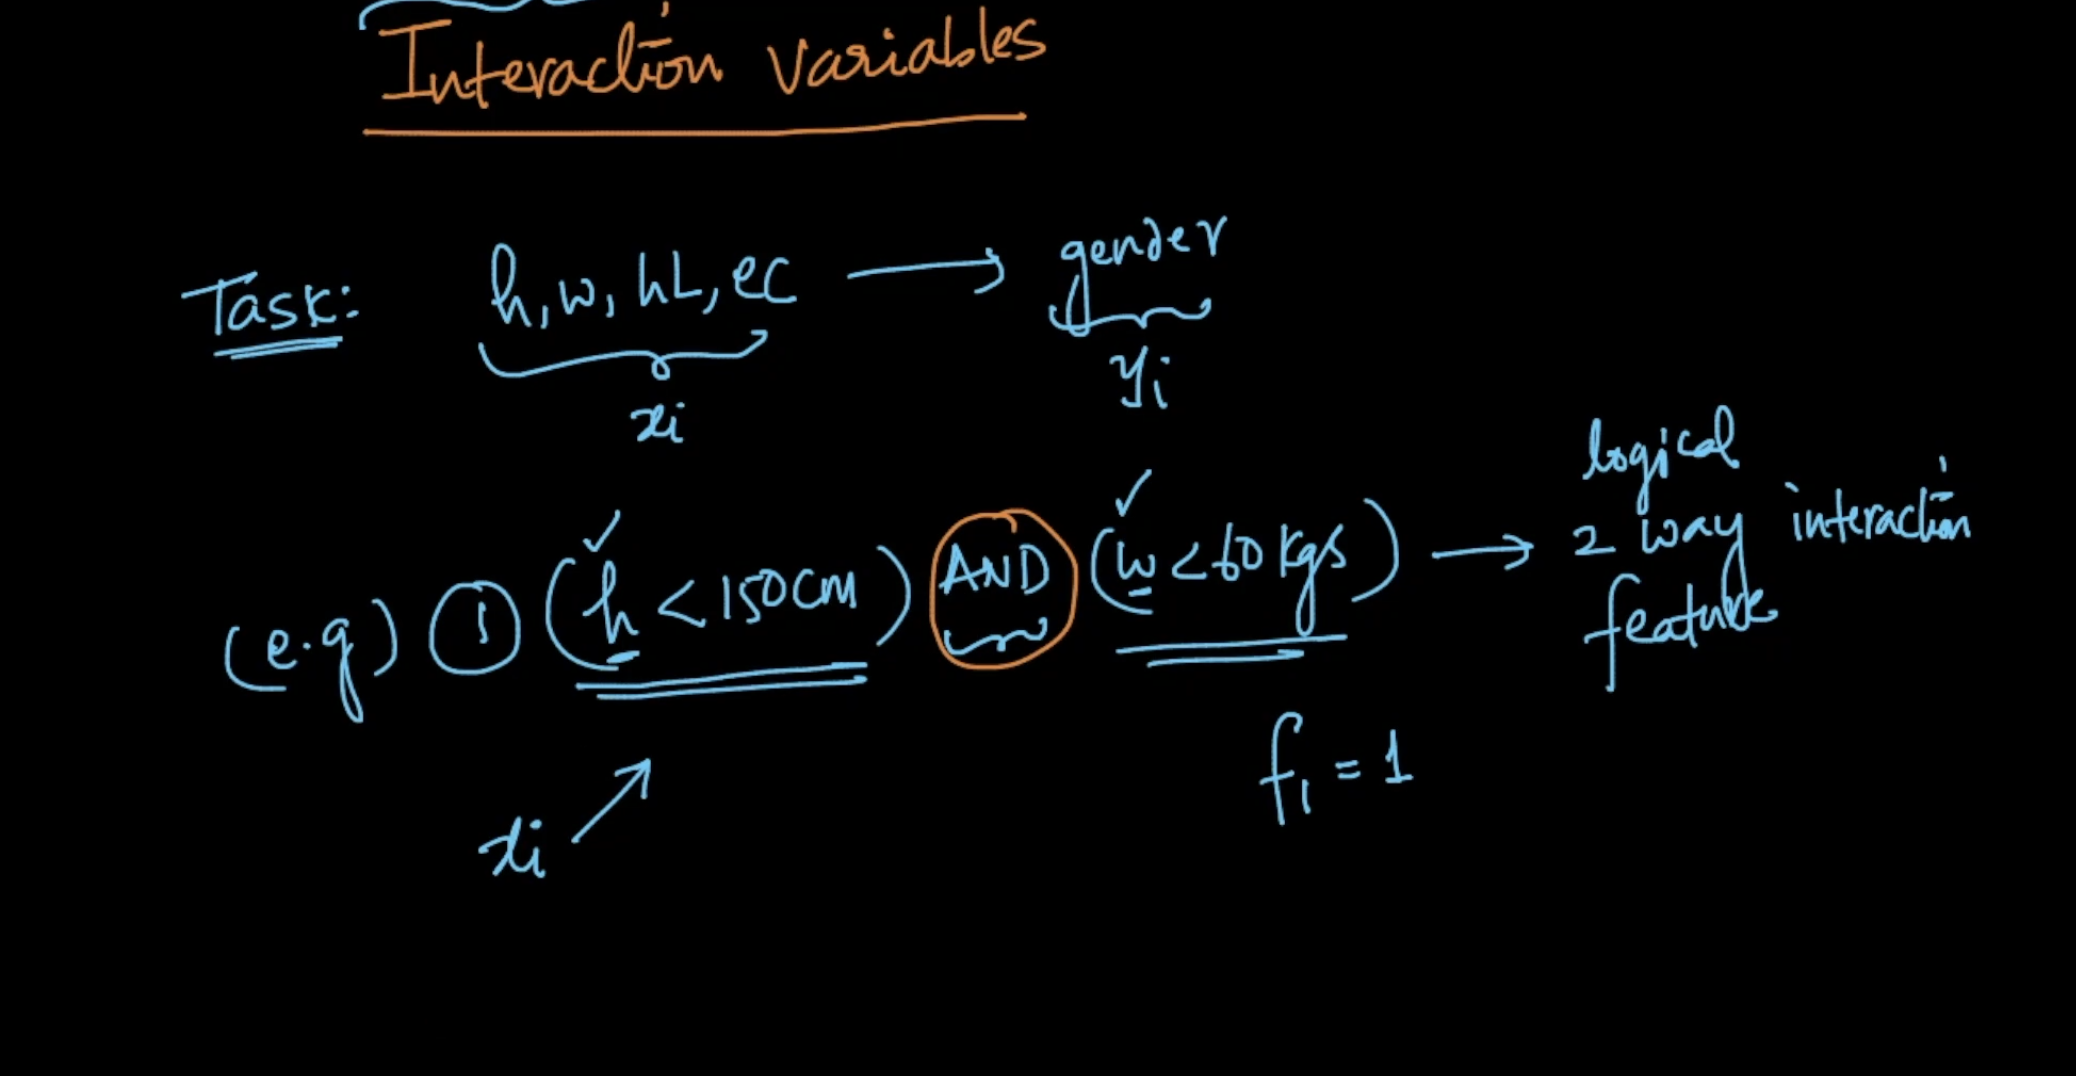 Interaction Variables
Task: h, w, hL, ec → gender
xi yi
(e.g) ① (h < 150 cm) AND (w < 60 kgs) → logical 2 way interaction feature
f1 = 1
xi